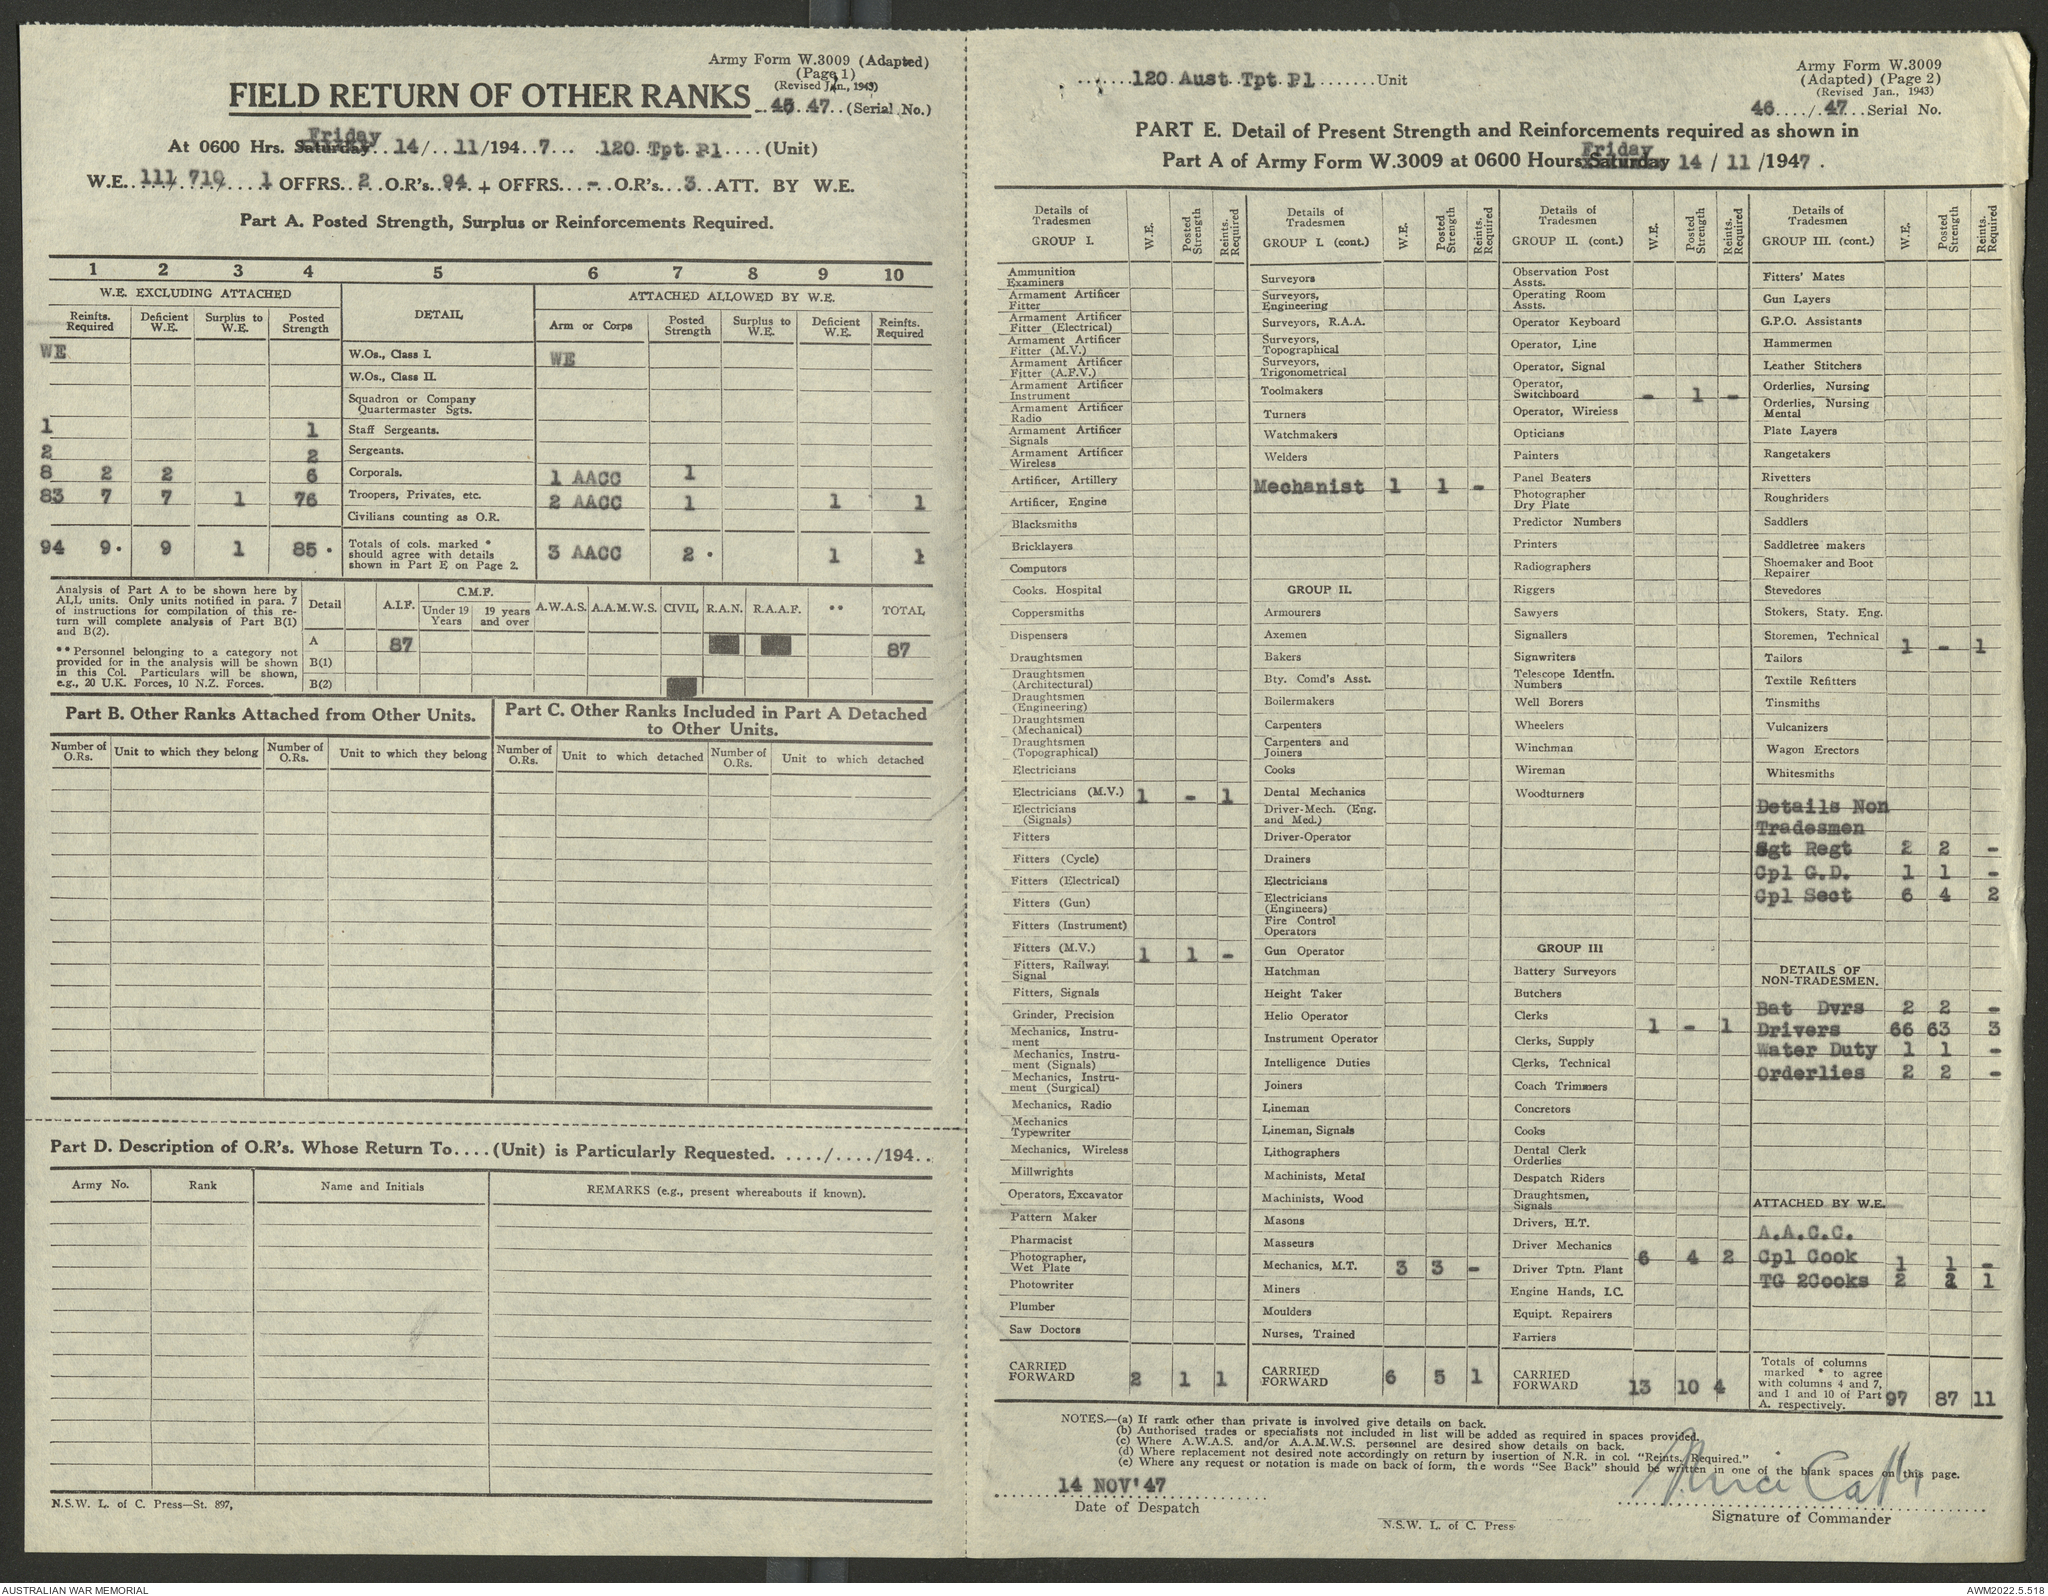 Army Form W.3009 (Adapted)
(Page 1)
(Revised Jan., 1943)
FIELD RETURN OF OTHER RANKS
46 47 (Serial No.)
At 0600 Hrs. Saturday Friday 14/ 11/194 7 120 Tpt Pl (Unit)
W.E. 111/710/ 1 OFFRS. 2 O.R's. 94 + OFFRS. - O.R's. 3 ATT. BY W.E.
Part A. Posted Strength, Surplus or Reinforcements Required.
1 2 3 4 5 6 7 8 9 10
W.E. EXCLUDING ATTACHED DETAIL ATTACHED ALLOWED BY W.E.
Reinfts. Required Deficient W.E. Surplus to W.E. Posted Strength Arm or Corps Posted Strength Surplus to W.E. Deficient W.E. Reinfts. Required
WE W.Os., Class I. WE
W.Os., Class II.
Squadron or Company
Quartermaster Sgts.
1 1 Staff Sergeants.
2 2 Sergeants.
8 2 2 6 Corporals. 1 AACC 1
83 7 7 1 76 Troopers, Privates, etc. 2 AACC 1 1 1
Civilians counting as O.R.
94 9* 9 1 85* Totals of cols. marked * should agree with details shown in Part E on Page 2. 3 AACC 2* 1 1
Analysis of Part A to be shown here by
ALL units. Only units notified in para. 7
of instructions for compilation of this re-
turn will complete analysis of Part B(1)
and B(2).
** Personnel belonging to a category not
provided for in the analysis will be shown
in this Col. Particulars will be shown,
e.g., 20 U.K. Forces, 10 N.Z. Forces.
Detail A.I.F. C.M.F. Under 19 Years 19 years and over A.W.A.S. A.A.M.W.S. CIVIL R.A.N. R.A.A.F. ** TOTAL
A 87 87
B(1)
B(2)
Part B. Other Ranks Attached from Other Units.
Number of O.Rs. Unit to which they belong Number of O.Rs. Unit to which they belong
Part C. Other Ranks Included in Part A Detached
to Other Units.
Number of O.Rs. Unit to which detached Number of O.Rs. Unit to which detached
Part D. Description of O.R's. Whose Return To.... (Unit) is Particularly Requested. ..../..../194..
Army No. Rank Name and Initials REMARKS (e.g., present whereabouts if known).
N.S.W. L. of C. Press—St. 897,
120 Aust Tpt Pl Unit
Army Form W.3009
(Adapted) (Page 2)
(Revised Jan., 1943)
46 / 47 Serial No.
PART E. Detail of Present Strength and Reinforcements required as shown in
Part A of Army Form W.3009 at 0600 Hours Saturday Friday 14 / 11 /1947 .
Details of Tradesmen GROUP I. W.E. Posted Strength Reints. Required
Ammunition Examiners
Armament Artificer Fitter
Armament Artificer Fitter (Electrical)
Armament Artificer Fitter (M.V.)
Armament Artificer Fitter (A.F.V.)
Armament Artificer Instrument
Armament Artificer Radio
Armament Artificer Signals
Armament Artificer Wireless
Artificer, Artillery
Artificer, Engine
Blacksmiths
Bricklayers
Computors
Cooks. Hospital
Coppersmiths
Dispensers
Draughtsmen
Draughtsmen (Architectural)
Draughtsmen (Engineering)
Draughtsmen (Mechanical)
Draughtsmen (Topographical)
Electricians
Electricians (M.V.) 1 - 1
Electricians (Signals)
Fitters
Fitters (Cycle)
Fitters (Electrical)
Fitters (Gun)
Fitters (Instrument)
Fitters (M.V.) 1 1 -
Fitters, Railway, Signal
Fitters, Signals
Grinder, Precision
Mechanics, Instrument
Mechanics, Instrument (Signals)
Mechanics, Instrument (Surgical)
Mechanics, Radio
Mechanics Typewriter
Mechanics, Wireless
Millwrights
Operators, Excavator
Pattern Maker
Pharmacist
Photographer, Wet Plate
Photowriter
Plumber
Saw Doctors
CARRIED FORWARD 2 1 1
Details of Tradesmen GROUP I. (cont.) W.E. Posted Strength Reints. Required
Surveyors
Surveyors, Engineering
Surveyors, R.A.A.
Surveyors, Topographical
Surveyors, Trigonometrical
Toolmakers
Turners
Watchmakers
Welders
Mechanist 1 1 -
GROUP II.
Armourers
Axemen
Bakers
Bty. Comd's Asst.
Boilermakers
Carpenters
Carpenters and Joiners
Cooks
Dental Mechanics
Driver-Mech. (Eng. and Med.)
Driver-Operator
Drainers
Electricians
Electricians (Engineers)
Fire Control Operators
Gun Operator
Hatchman
Height Taker
Helio Operator
Instrument Operator
Intelligence Duties
Joiners
Lineman
Lineman, Signals
Lithographers
Machinists, Metal
Machinists, Wood
Masons
Masseurs
Mechanics, M.T. 3 3 -
Miners
Moulders
Nurses, Trained
CARRIED FORWARD 6 5 1
Details of Tradesmen GROUP II. (cont.) W.E. Posted Strength Reints. Required
Observation Post Assts.
Operating Room Assts.
Operator Keyboard
Operator, Line
Operator, Signal
Operator, Switchboard - 1 -
Operator, Wireless
Opticians
Painters
Panel Beaters
Photographer Dry Plate
Predictor Numbers
Printers
Radiographers
Riggers
Sawyers
Signallers
Signwriters
Telescope Identfn. Numbers
Well Borers
Wheelers
Winchman
Wireman
Woodturners
GROUP III
Battery Surveyors
Butchers
Clerks 1 - 1
Clerks, Supply
Clerks, Technical
Coach Trimmers
Concretors
Cooks
Dental Clerk Orderlies
Despatch Riders
Draughtsmen, Signals
Drivers, H.T.
Driver Mechanics 6 4 2
Driver Tptn. Plant
Engine Hands, I.C.
Equipt. Repairers
Farriers
CARRIED FORWARD 13 10 4
Details of Tradesmen GROUP III. (cont.) W.E. Posted Strength Reints. Required
Fitters' Mates
Gun Layers
G.P.O. Assistants
Hammermen
Leather Stitchers
Orderlies, Nursing
Orderlies, Nursing Mental
Plate Layers
Rangetakers
Rivetters
Roughriders
Saddlers
Saddletree makers
Shoemaker and Boot Repairer
Stevedores
Stokers, Staty. Eng.
Storemen, Technical 1 - 1
Tailors
Textile Refitters
Tinsmiths
Vulcanizers
Wagon Erectors
Whitesmiths
Details Non
Tradesmen
Sgt Regt 2 2 -
Cpl G.D. 1 1 -
Cpl Sect 6 4 2
DETAILS OF
NON-TRADESMEN.
Bat Dvrs 2 2 -
Drivers 66 63 3
Water Duty 1 1 -
Orderlies 2 2 -
ATTACHED BY W.E.
A.A.C.C.
Cpl Cook 1 1 -
TG 2Cooks 2 1 1
Totals of columns marked * to agree with columns 4 and 7, and 1 and 10 of Part A. respectively. 97 87 11
NOTES.—(a) If rank other than private is involved give details on back.
(b) Authorised trades or specialists not included in list will be added as required in spaces provided.
(c) Where A.W.A.S. and/or A.A.M.W.S. personnel are desired show details on back.
(d) Where replacement not desired note accordingly on return by insertion of N.R. in col. "Reints. Required."
(e) Where any request or notation is made on back of form, the words "See Back" should be written in one of the blank spaces on this page.
14 NOV'47
Date of Despatch
Signature of Commander
N.S.W. L. of C. Press
AUSTRALIAN WAR MEMORIAL
AWM2022.5.518